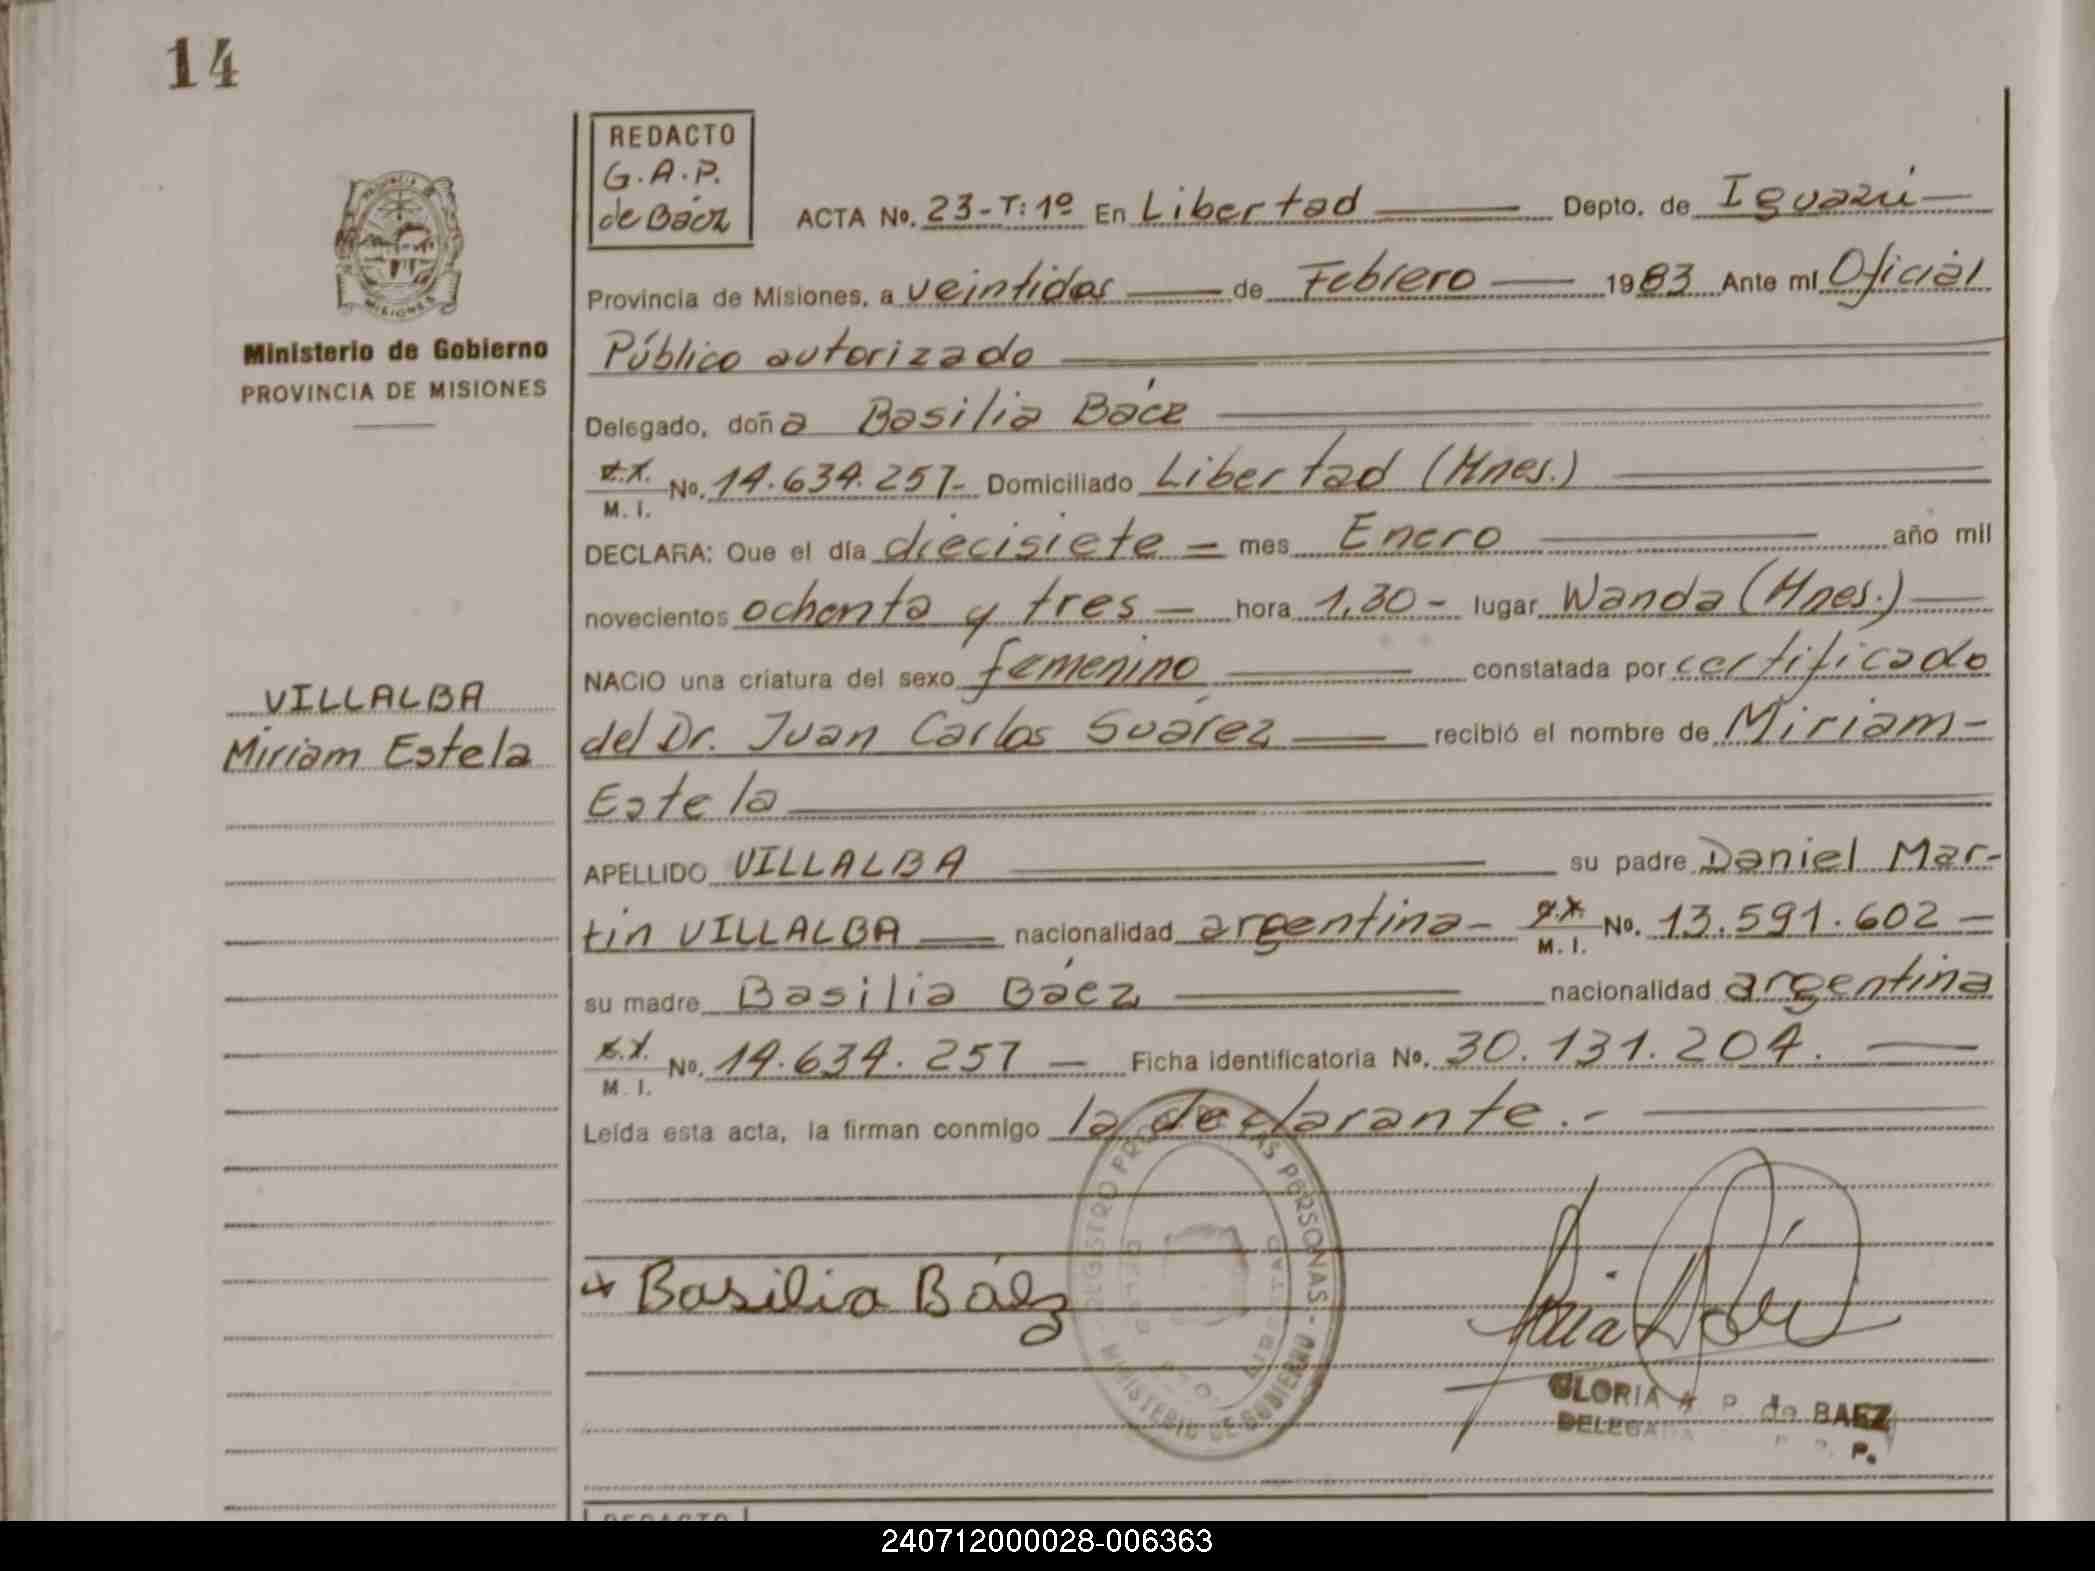 14
REDACTO
G.A.P.
de Báez
ACTA No. 23-T:1º En Libertad Depto. de Iguazú
Provincia de Misiones, a veintidos de Febrero 1983 Ante mí Oficial
Público autorizado
Delegado, doña Basilia Báez
No. 14.634.257- Domiciliado Libertad (Mnes.)
M. I.
DECLARA: Que el día diecisiete mes Enero año mil
novecientos ochenta y tres hora 1,30- lugar Wanda (Mnes.)
NACIO una criatura del sexo femenino constatada por certificado
del Dr. Juan Carlos Suárez recibió el nombre de Miriam-
Estela
APELLIDO VILLALBA su padre Daniel Mar-
tin VILLALBA nacionalidad argentina- No. 13.591.602
M. I.
su madre Basilia Báez nacionalidad argentina
No. 14.634.257 Ficha identificatoria No. 30.131.204.
M. I.
Leída esta acta, la firman conmigo la declarante.-
Basilia Báez
GLORIA A P de BAEZ
DELEGADA
P.
REDACTO
Ministerio de Gobierno
PROVINCIA DE MISIONES
VILLALBA
Miriam Estela
PROVINCIA
MISIONES
PERSONAS - MINISTERIO DE GOBIERNO
240712000028-006363